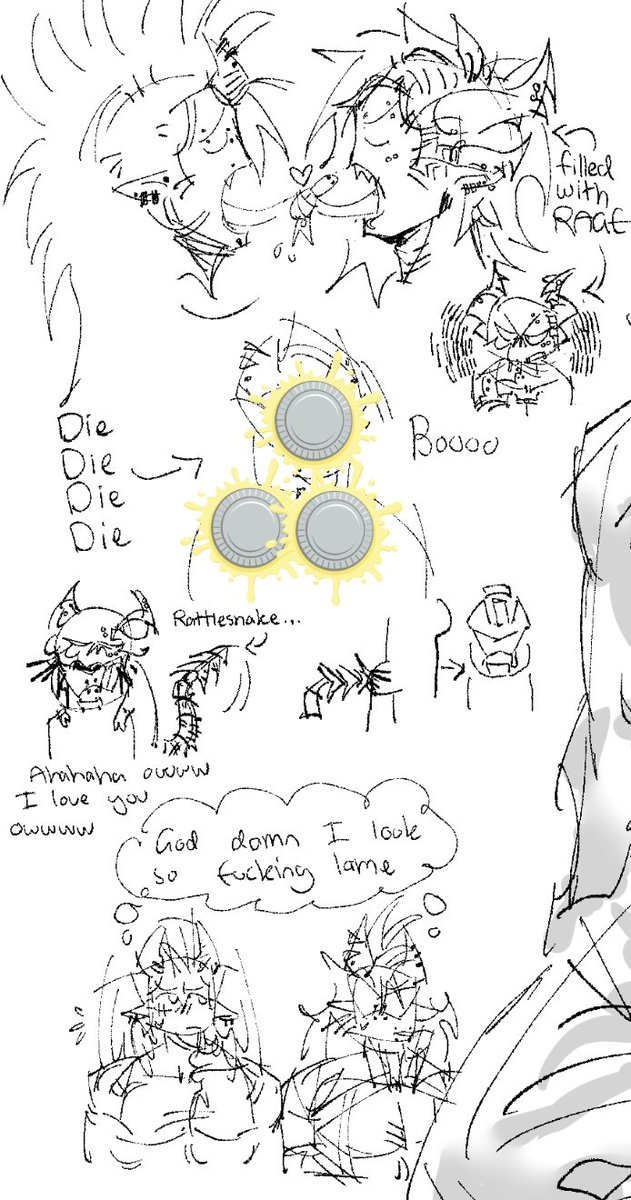 filled
with
RAGE
Die
Die
Die
Die
Boooo
Rattlesnake...
Ahahaha owwww
I love you
owwwww
God damn I look
so fucking lame